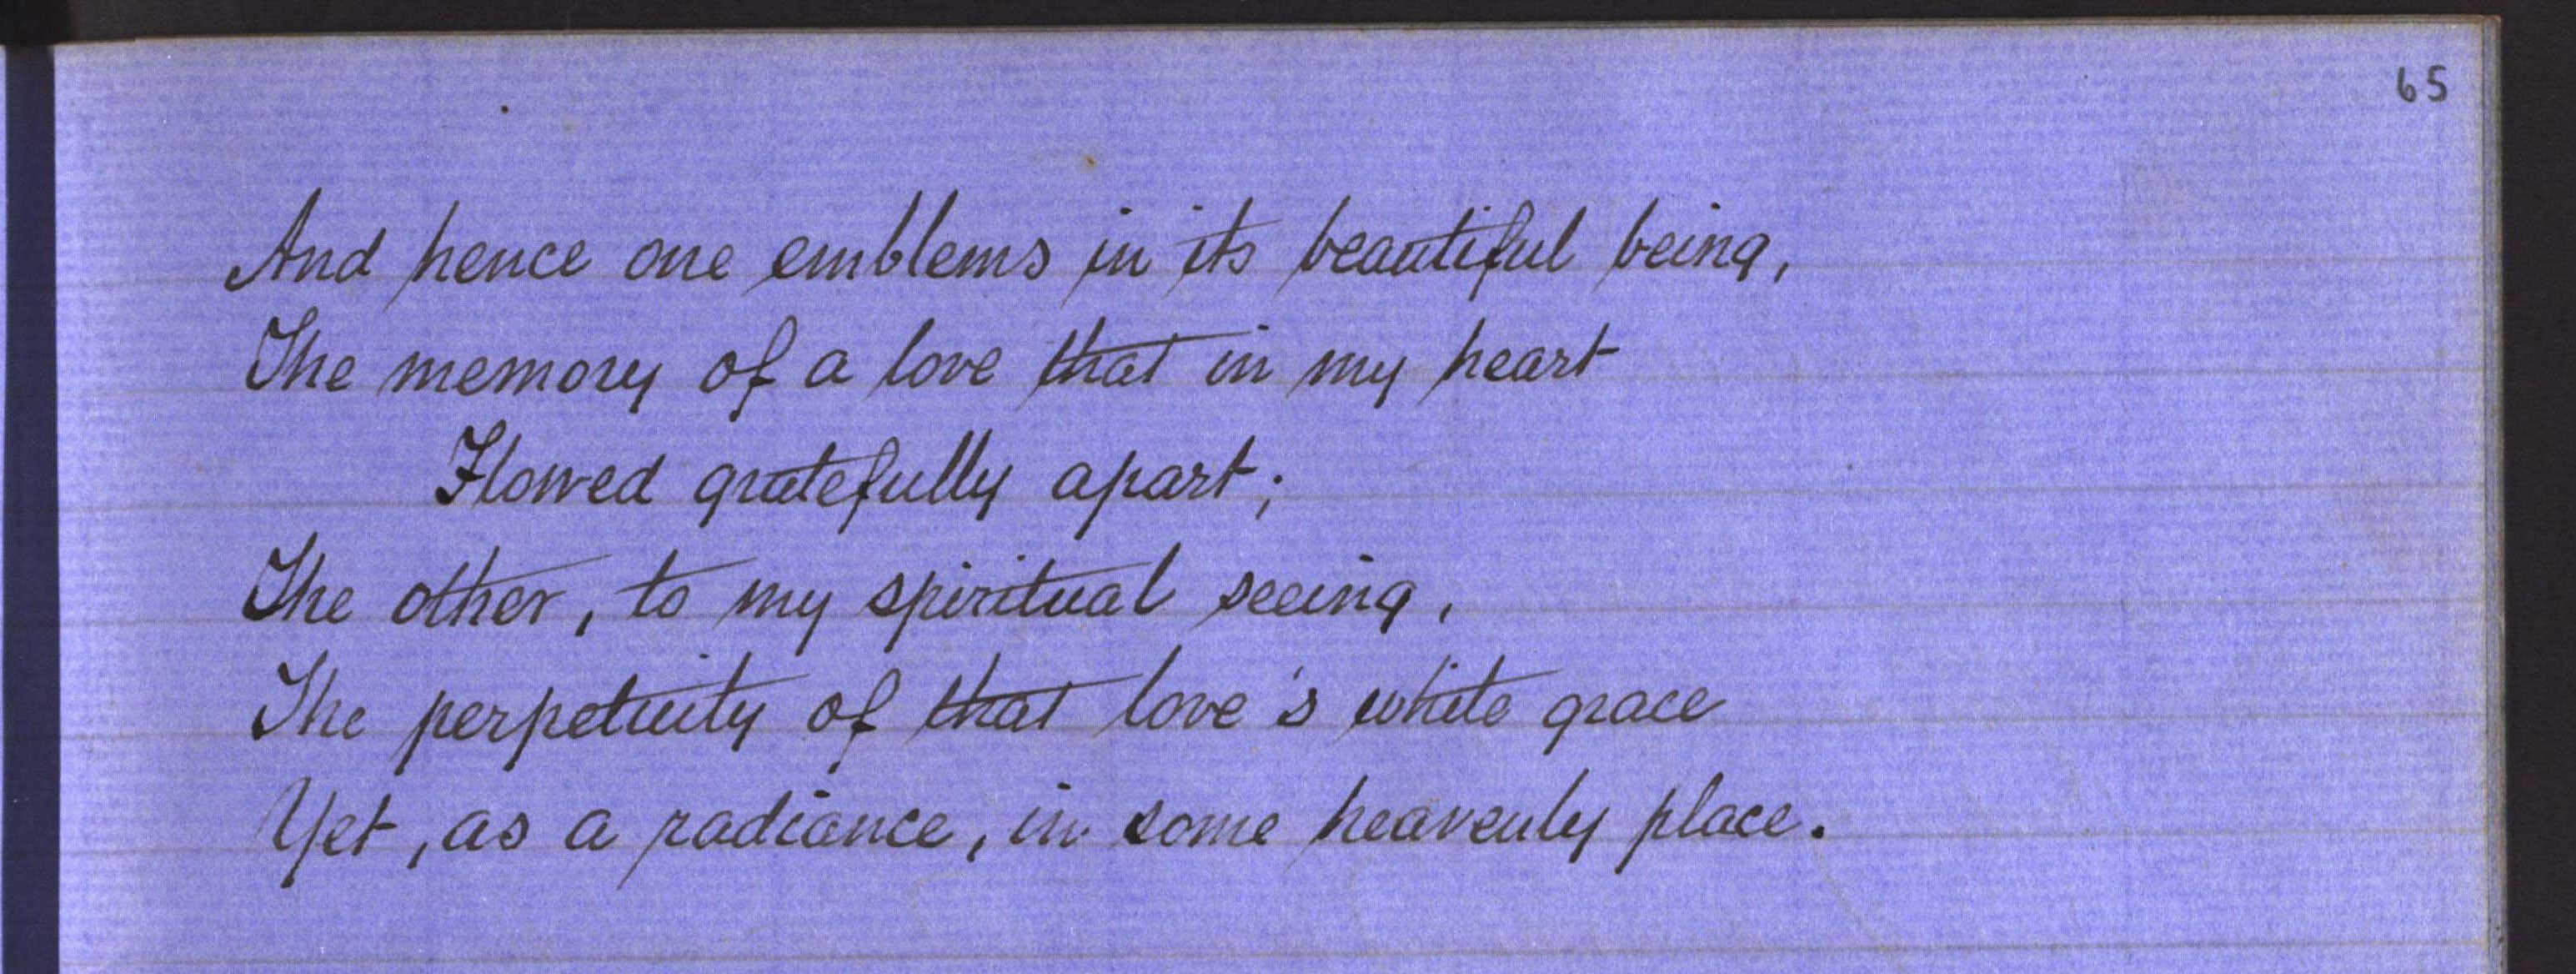 65
And hence one emblems in its beautiful being,
The memory of a love that in my heart
Flowed gratefully apart;
The other, to my spiritual seeing,
The perpetuity of that love's white grace
Yet, as a radiance, in some heavenly place.